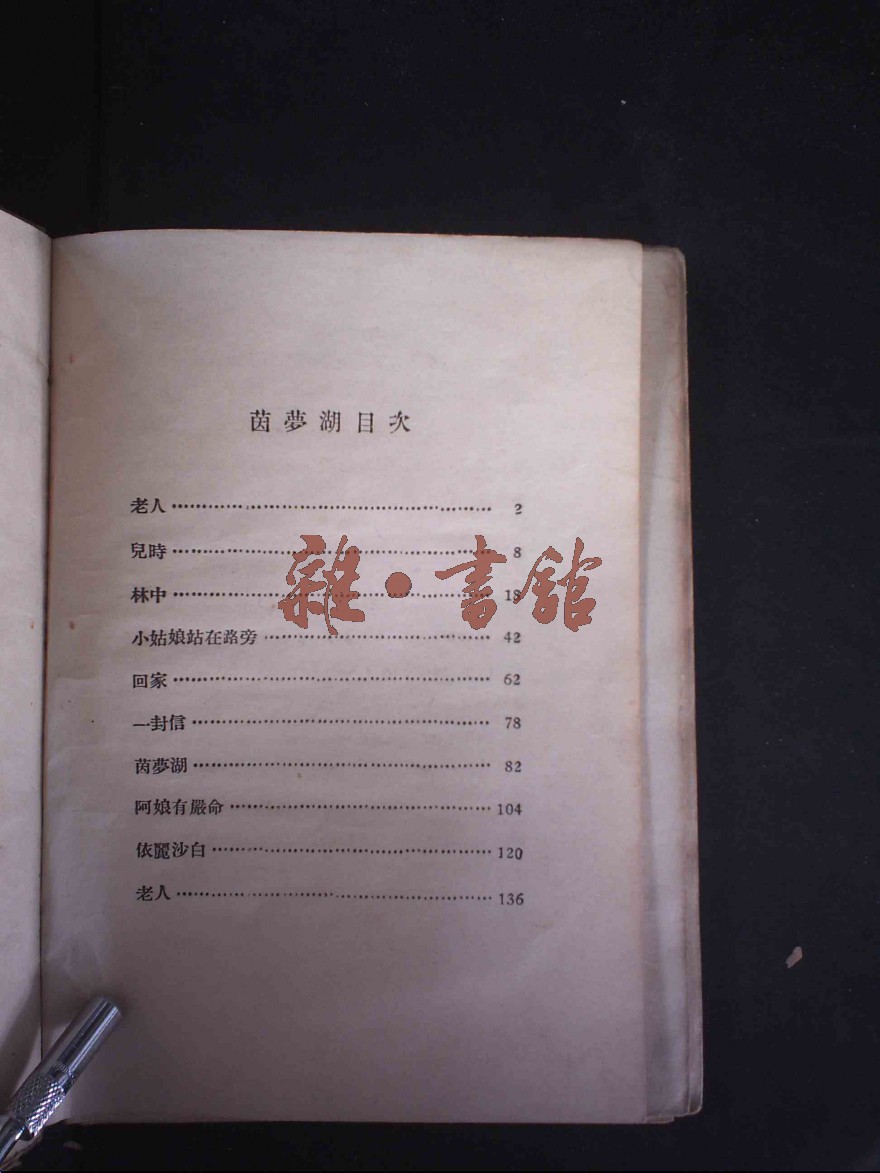 茵夢湖目次
老人 2
兒時 8
林中 18
小姑娘站在路旁 42
回家 62
一封信 78
茵夢湖 82
阿娘有嚴命 104
依麗沙白 120
老人 136
雜·書館